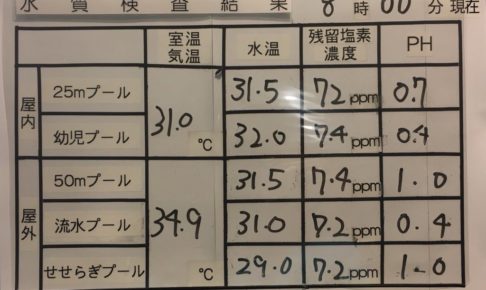 水質検査結果 8時00分現在
室温 気温 水温 残留塩素濃度 PH
屋内 25mプール 31.0℃ 31.5 72ppm 0.7
幼児プール 32.0 7.4ppm 0.4
屋外 50mプール 34.9℃ 31.5 7.4ppm 1.0
流水プール 31.0 7.2ppm 0.4
せせらぎプール 29.0 7.2ppm 1.0